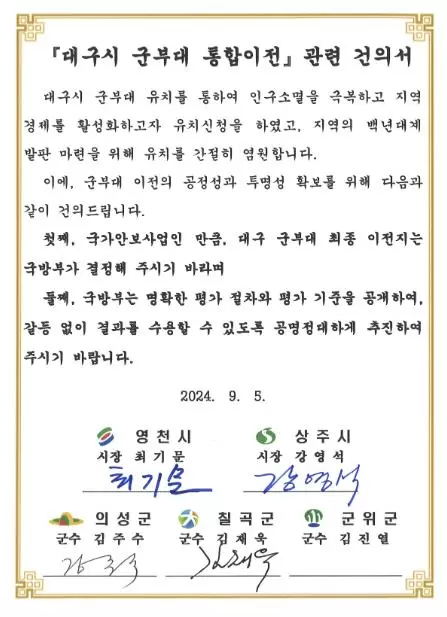 『대구시 군부대 통합이전』관련 건의서
대구시 군부대 유치를 통하여 인구소멸을 극복하고 지역
경제를 활성화하고자 유치신청을 하였고, 지역의 백년대계
발판 마련을 위해 유치를 간절히 염원합니다.
이에, 군부대 이전의 공정성과 투명성 확보를 위해 다음과
같이 건의드립니다.
첫째, 국가안보사업인 만큼, 대구 군부대 최종 이전지는
국방부가 결정해 주시기 바라며
둘째, 국방부는 명확한 평가 절차와 평가 기준을 공개하여,
갈등 없이 결과를 수용할 수 있도록 공명정대하게 추진하여
주시기 바랍니다.
2024. 9. 5.
영천시 상주시
시장 최기문 시장 강영석
최기문 강영석
의성군 칠곡군 군위군
군수 김주수 군수 김재욱 군수 김진열
김주수 김재욱